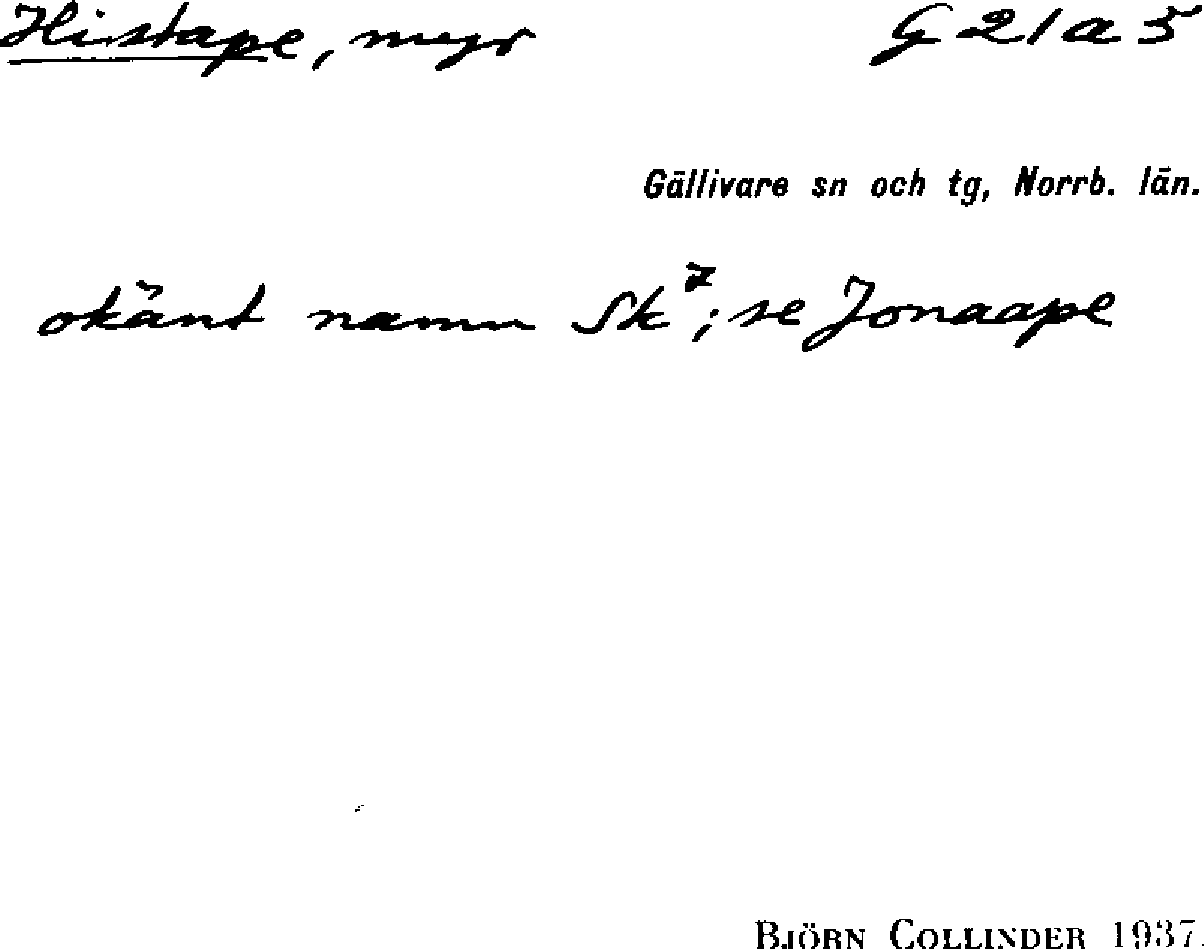 Histape, myr G 21 a 5
Gällivare sn och tg, Norrb. län.
okänt namn Sk⁷; se Jonaape
BJÖRN COLLINDER 1937